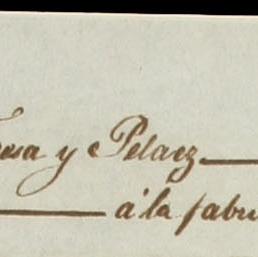 y Pelaez
á la fabri